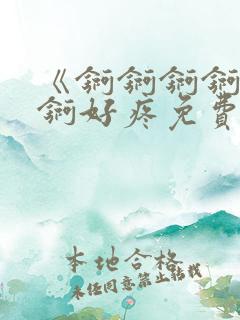 《锕锕锕锕
锕好疼免費
本地合格
未经同意禁止转载